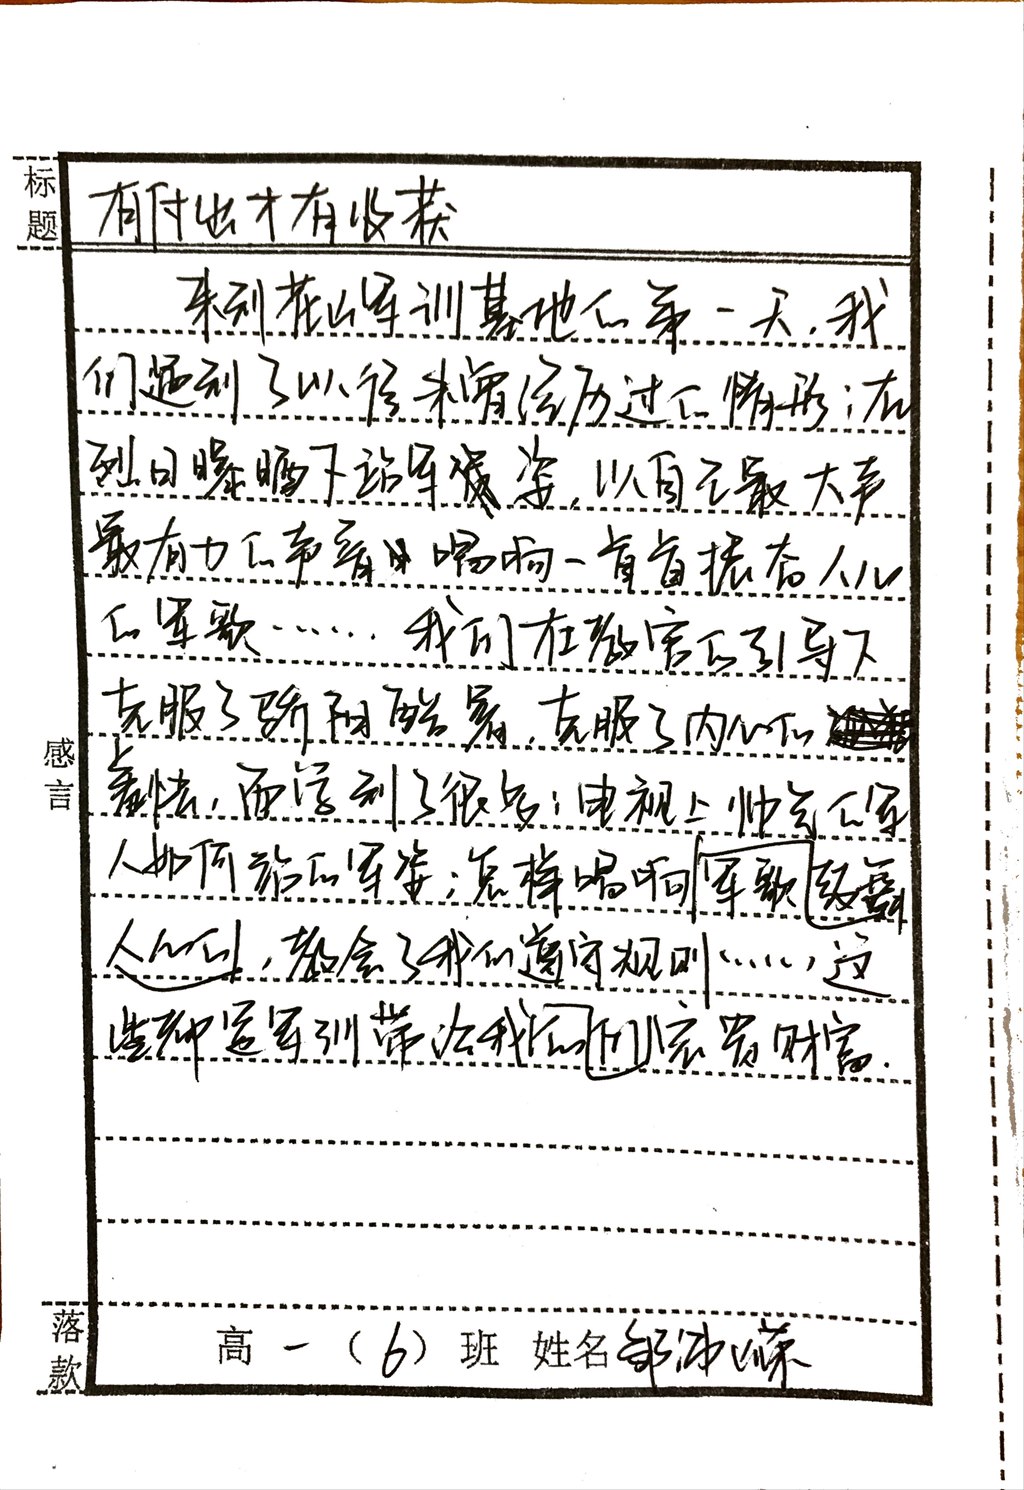 标题
有付出才有收获
来到花山军训基地的第一天，我
们遇到了以往未曾经历过的情形：在
烈日曝晒下站军姿，以自己最大声
最有力的声音唱响一首首振奋人心
的军歌……我们在教官的引导下
克服了骄阳酷暑，克服了内心的
胆怯，而学到了很多：电视上帅气的军
人如何站的军姿；怎样唱响军歌
人心的，教会了我们遵守规则……，这
些都是军训带给我们的宝贵财富.
感言
落款
高一（6）班 姓名